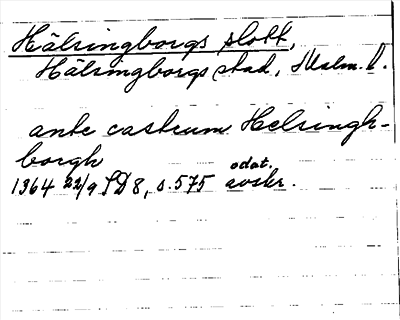 Hälsingborgs slott,
Hälsingborgs stad, Malm. l.
ante castrum Helsingh-
borgh
1364 22/9 SD 8, s. 575 odat. avskr.